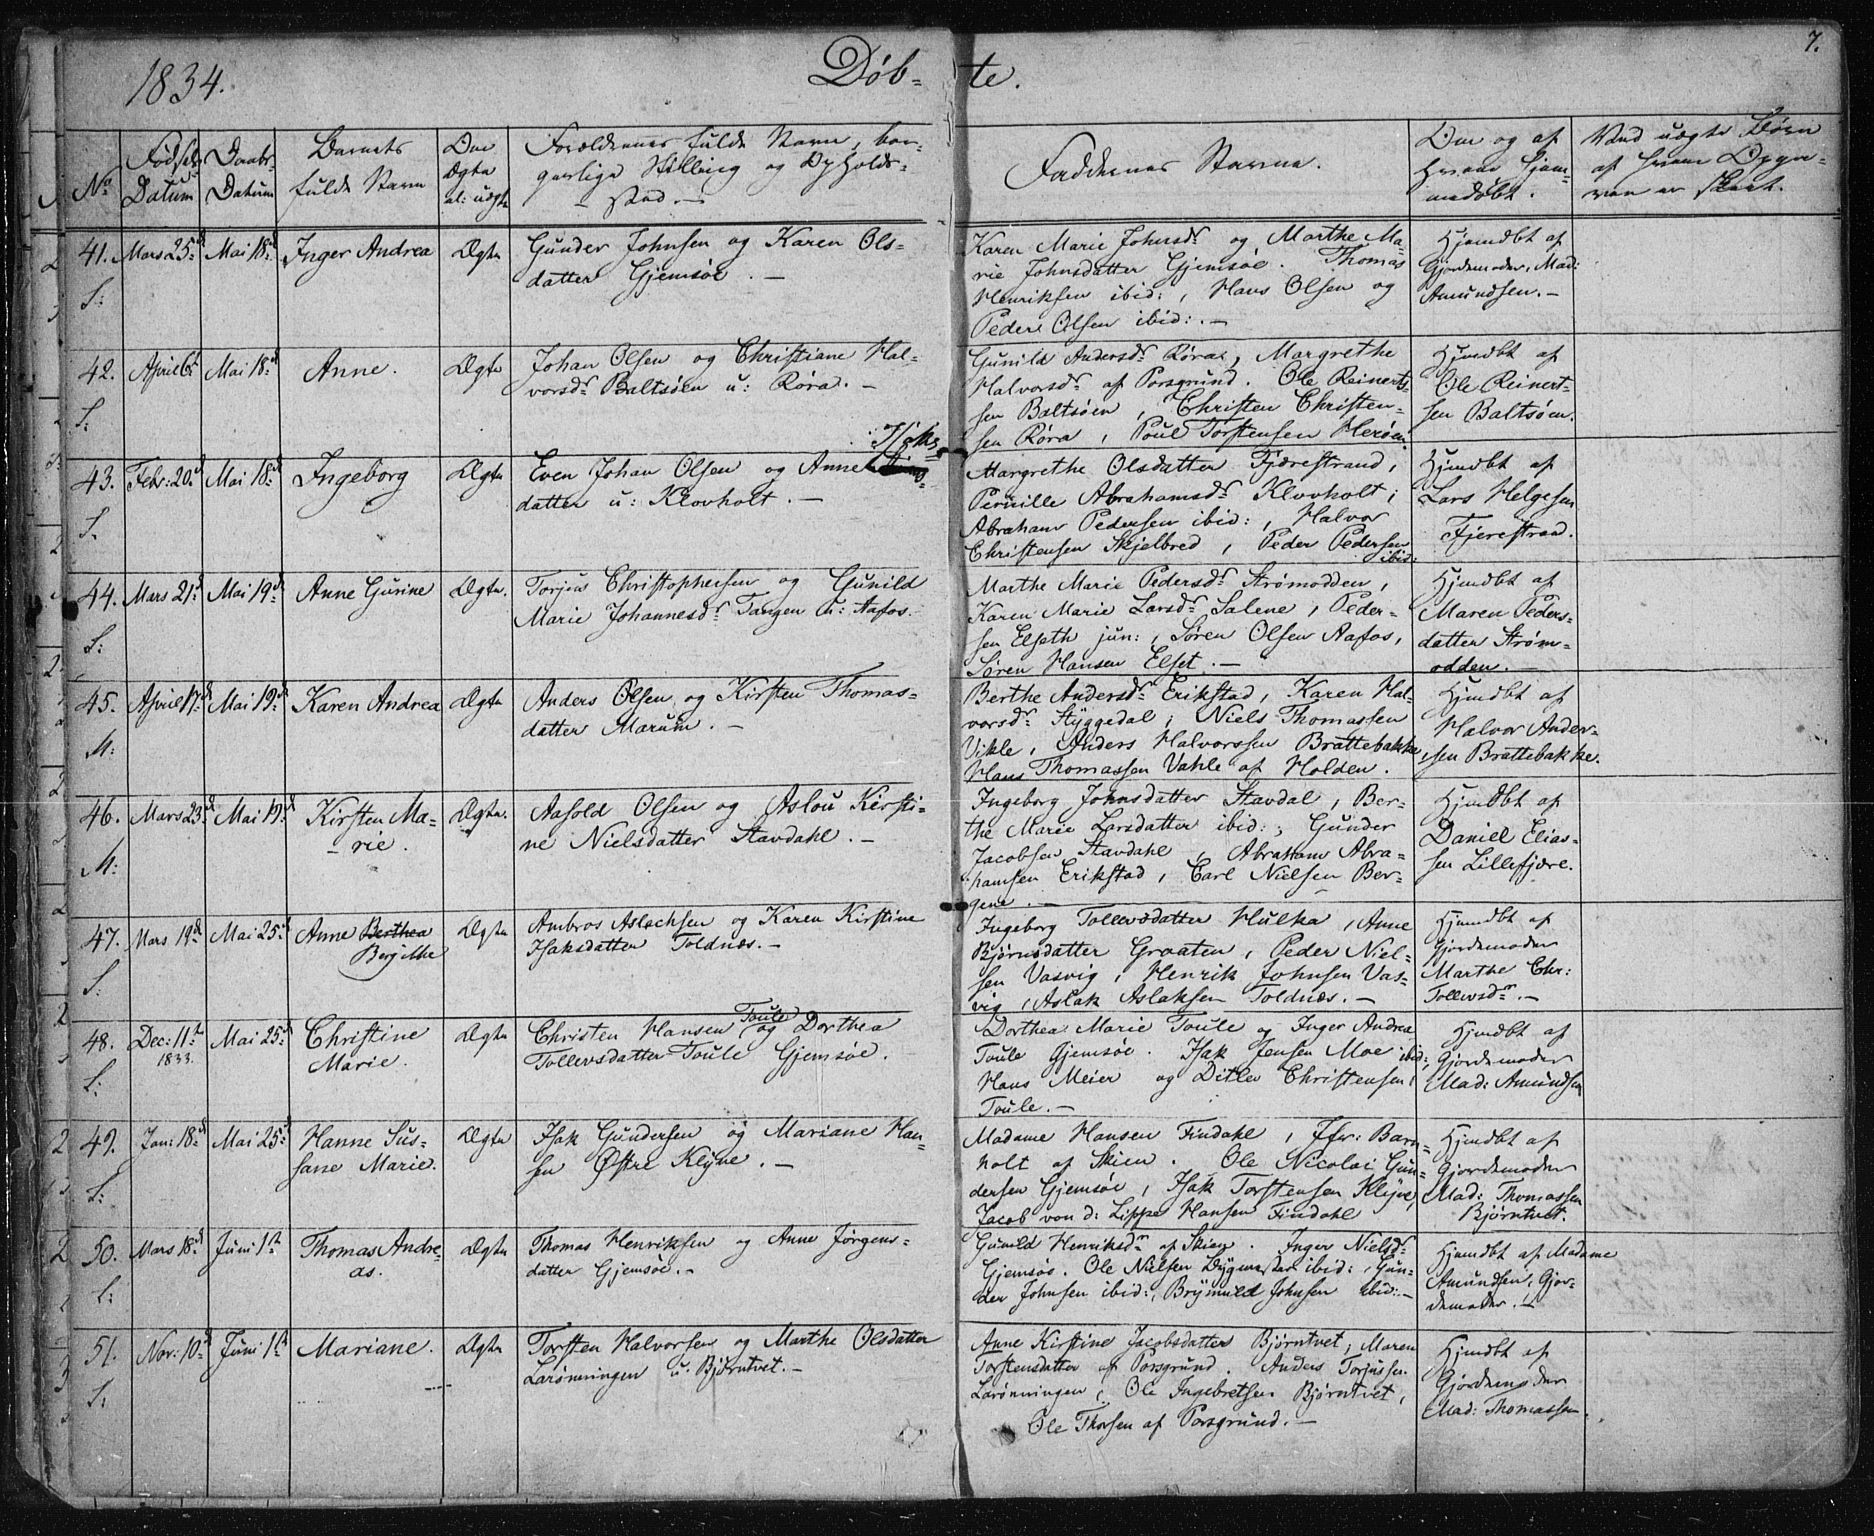 7.
1834.
Døb- te.
No
Fødsels Datum
Daabs- Datum
Barnets fulde Navn
Om Ægte el: uægte
Forældrenes fulde Navn, bor-
gerlige Stilling og Opholds-
sted.
Faddernes Navne.
Om og af
hvem hjem-
medøbt.
Ved uægte Børn
41. Mars 25de Mai 18de Inger Andrea Ægte
S:
Gunder Johnsen og Karen Ols-
datter Gjemsøe. —
Karen Marie Johnsdr og Marthe Ma-
rie Johnsdatter Gjemsøe. Thomas
Henriksen ibid:, Hans Olsen og
Peder Olsen ibid:. —
Hjemdbt af
Gjordemoder, Mad:
Amundsen. —
42. April 6te Mai 18de Anne. Ægte
S:
Johan Olsen og Christiane Hal-
vorsdr Baltsøen u: Røra. —
Gunild Andersdr Røra, Margrethe
Halvorsdr af Porsgrund. Ole Reinert-
sen Baltsøen, Christen Christen-
sen Røra, Poul Torstensen Herøen
Hjemdbt af
Ole Reinert-
sen Baltsøen.
43. Febr: 20de Mai 18de Ingeborg Ægte
S.
Isaks
Even Johan Olsen og Anne
datter u: Klovholt. —
Margrethe Olsdatter Fjærestrand,
Pernille Abrahamsdr Klovholt;
Abraham Pedersen ibid:, Halvor
Christensen Skjelbred, Peder Pedersen
ibid:
Hjmdbt af
Lars Helgesen
Fjerestran.
44. Mars 21de Mai 19de Anne Gurine Ægte.
S:
Torjus Christophersen og Gunild
Marie Johannesdr Tangen u: Aafos.
Marthe Marie Pedersdr Strømodden,
Karen Marie Larsdr Salene, Peder-
sen Elseth jun:, Søren Olsen Aafos,
Søren Hansen Elset. —
Hjmdbt af
Maren Peders-
datter Strøm-
odden. —
45. April 17de Mai 19de Karen Andrea Ægte
M:
Anders Olsen og Kirsten Thomas-
datter Marum. —
Berthe Andersdr Erikstad, Karen Hal-
vorsdr Styggedal; Niels Thomassen
Vikle, Anders Halvorssen Brattebakke,
Hans Thomassen Vahle af Holden.
Hjmdbt af
Halvor Ander-
sen Brattebakke.
46. Mars 23de Mai 19de Kirsten Ma-
rie. Ægte.
M:
Aasold Olsen og Aslou Kirsti-
ne Nielsdatter Stavdahl. —
Ingeborg Johnsdatter Stavdal, Ber-
the Marie Larsdatter ibid:; Gunder
Jacobsen Stavdahl, Abraham Abra-
hamsen Erikstad, Carl Nielsen Ber-
gene. —
Hjemdbt af
Daniel Elias-
sen Lillefjære.
47. Mars 19de Mai 25de Anne Berthea
Bergithe Ægte
S:
Ambros Aslachsen og Karen Kirstine
Isaksdatter Toldnæs. —
Ingeborg Tollevsdatter Hulka, Anne
Bjørnsdatter Graaten, Peder Niel-
sen Vasvig, Henrik Johnsen Vas-
vig, Aslak Aslaksen Toldnæs. —
Hjemdbt af
Gjordemoder
Marthe Chr:
Tollevsdr. —
48. Dec: 11te
1833. Mai 25de Christine
Marie. Ægte
S:
Toule
Christen Hansen og Dorthea
Tollevsdatter Toule Gjemsøe.
Dorthea Marie Toule og Inger Andrea
Toule Gjemsøe. Isak Jensen Moe ibid:,
Hans Meier og Ditlev Christensen
Toule. —
Hjemdbt af
Gjordemoder
Mad: Amundsen
49. Jan: 18de Mai 25de Hanne Sus-
sane Marie. Ægte
S:
Isak Gundersen og Mariane Han-
sen Østre Klyve. —
Madame Hansen Findahl, Jfr: Barn-
holt af Skien. Ole Nicolai Gun-
dersen Gjemsøe, Isak Torstensen Klyve,
Jacob von d: Lippe Hansen Findahl
Hjemdbt af
Gjordemoder
Mad: Thomassen
Bjørntvet.
50. Mars 18de Juni 1te Thomas Andre-
as. Ægte
S:
Thomas Henriksen og Anne Jørgens-
datter Gjemsøe. —
Gunild Henriksdr af Skien. Inger Nielsdr
Gjemsøe. Ole Nielsen Bygmester ibid:, Gun-
der Johnsen ibid:, Brynuld Johnsen ibid: —
Hjemdbt af Madame
Amundsen, Gjor-
demoder. —
51. Nov: 10de Juni 1te Mariane. Ægte
S:
Torsten Halvorsen og Marthe Olsdatter
Larønningen u. Bjørntvet. —
Anne Kirstine Jacobsdatter Bjørntvet, Maren
Torstensdatter af Porsgrund. Anders Torjussen
Larønningen, Ole Ingebretsen Bjørntvet,
Ole Thorsen af Porsgrund. —
Hjemdbt af
Gjordemoder
Mad: Thomassen.